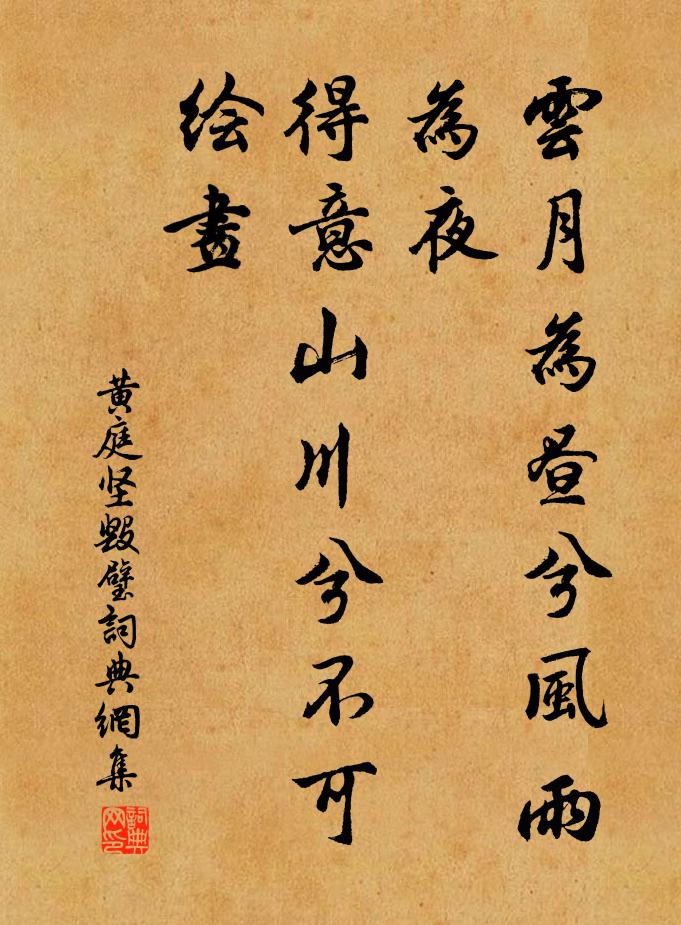 雲月為昼兮風雨
為夜
得意山川兮不可
绘畫
黄庭坚毁璧詞典網集
詞典
网印